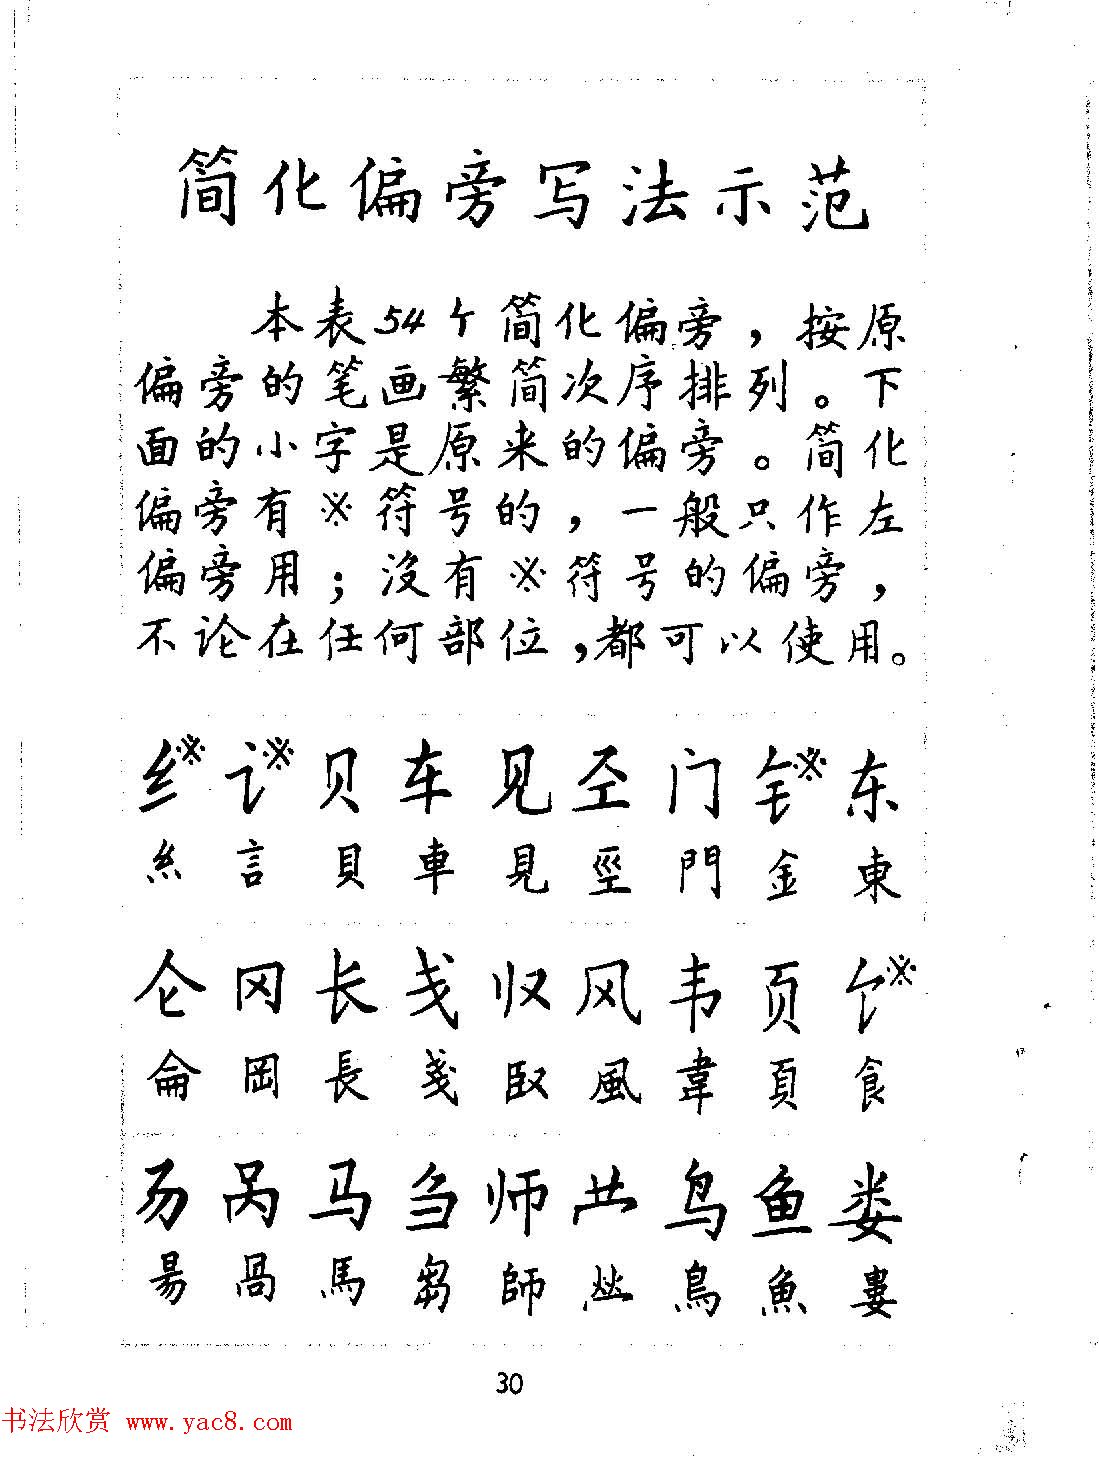 简化偏旁写法示范
本表54个简化偏旁，按原
偏旁的笔画繁简次序排列。下
面的小字是原来的偏旁。简化
偏旁有※符号的，一般只作左
偏旁用；没有※符号的偏旁，
不论在任何部位，都可以使用。
纟※ 讠※ 贝 车 见 圣 门 钅※ 东
糹 言 貝 車 見 巠 門 金 東
仑 冈 长 戋 収 风 韦 页 饣※
侖 岡 長 戔 臤 風 韋 頁 食
𠃓 呙 马 刍 师 鸟 鱼 娄
昜 咼 馬 芻 師 鳥 魚 婁
30
书法欣赏 www.yac8.com